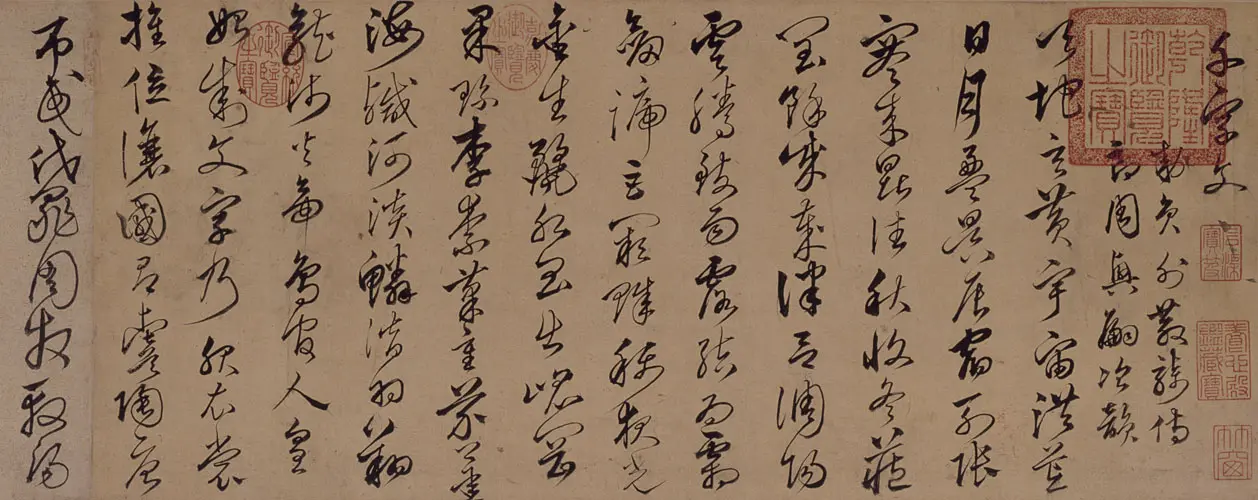 千字文
敕員外散騎侍
郎周興嗣次韻
天地玄黃宇宙洪荒
日月盈昃辰宿列張
寒來暑往秋收冬藏
閏餘成歲律呂調陽
雲騰致雨露結為霜
劒號巨闕珠稱夜光
金生麗水玉出崑岡
果珍李柰菜重芥薑
海鹹河淡鱗潛羽翔
龍師火帝鳥官人皇
始制文字乃服衣裳
推位讓國有虞陶唐
弔民伐罪周發殷湯
乾隆御覽之寶
石渠寶笈
養心殿鑑藏寶
嘉慶御覽之寶